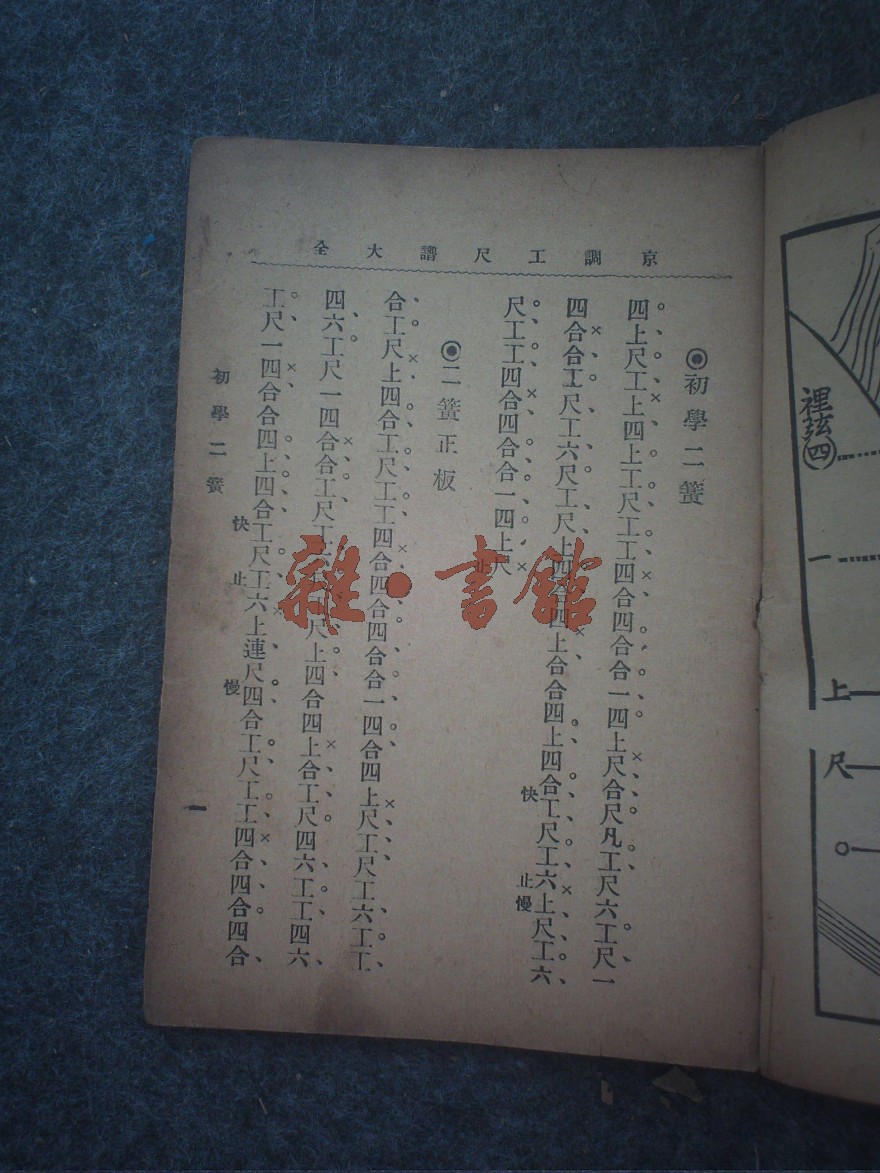 京調工尺譜大全
◉初學二簧
四上尺工上四上工尺工工四合四合合一四上尺合尺凡工尺六工尺一
四合合工尺工六尺工尺上四合四上合合四上四合工尺工六上尺工六
快
止慢
尺工工四合四合合一四上尺
止
◉二簧正板
合工尺上四合工尺工工四合四合四合合一四合四上尺工尺工六工工
四六工尺一四合合工尺工
四尺上四合四上合工尺四六工工四六
工尺一四合合四上四合工尺工六上連尺四合工尺工工四合四合四合
快
止
慢
初學二簧
一
雜·書館
裡弦四
一
上
尺